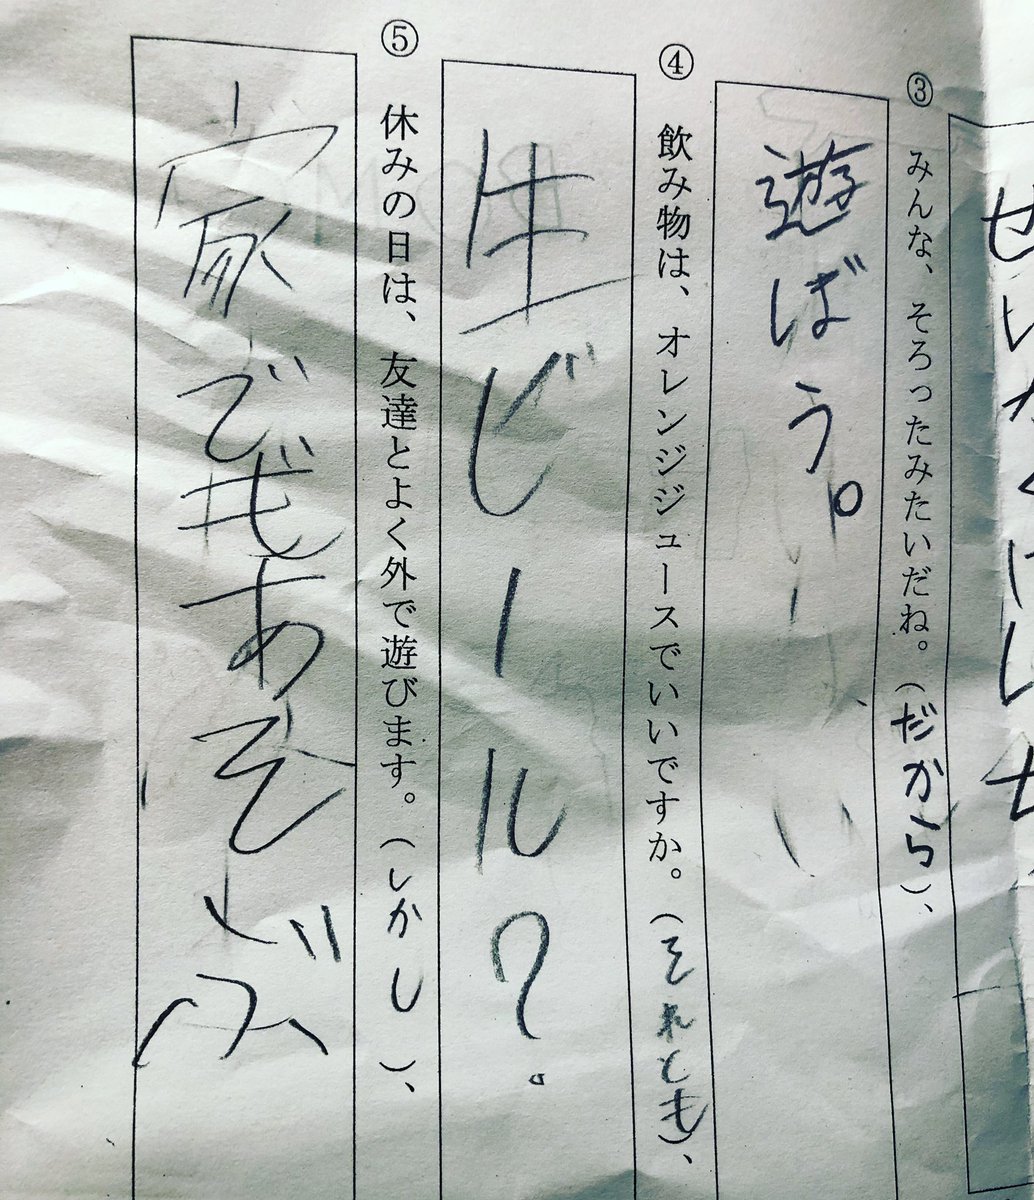 ③ みんな、そろったみたいだね。(だから)、
遊ばう。
④ 飲み物は、オレンジジュースでいいですか。(それとも)、
生じール?
⑤ 休みの日は、友達とよく外で遊びます。(しかし)、
家でもあそぶ